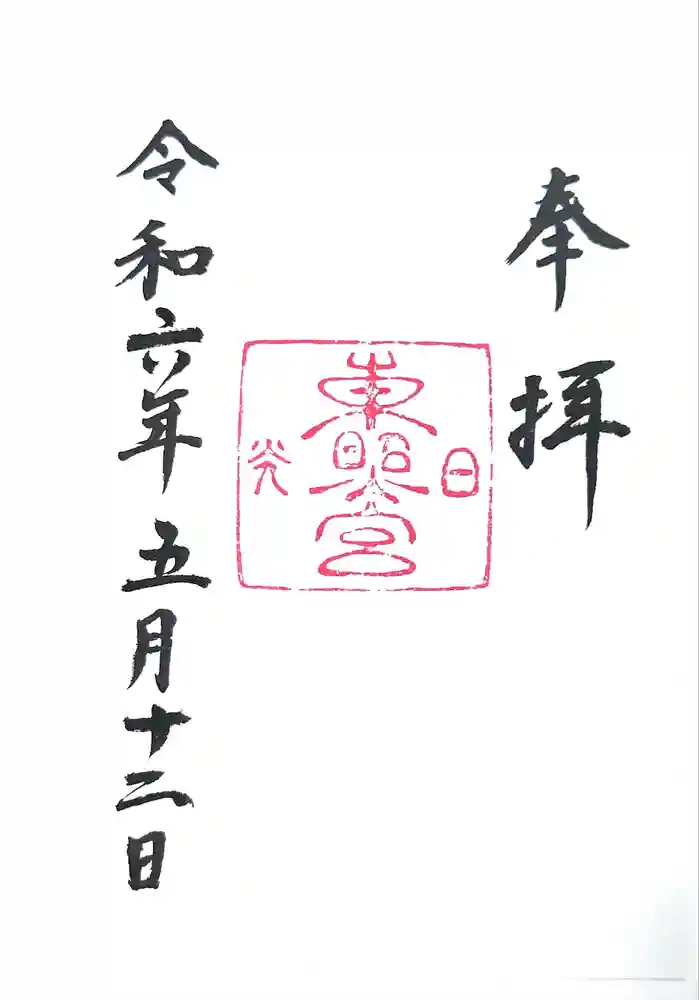 奉拝
日
東照宮
光
令和六年五月十二日